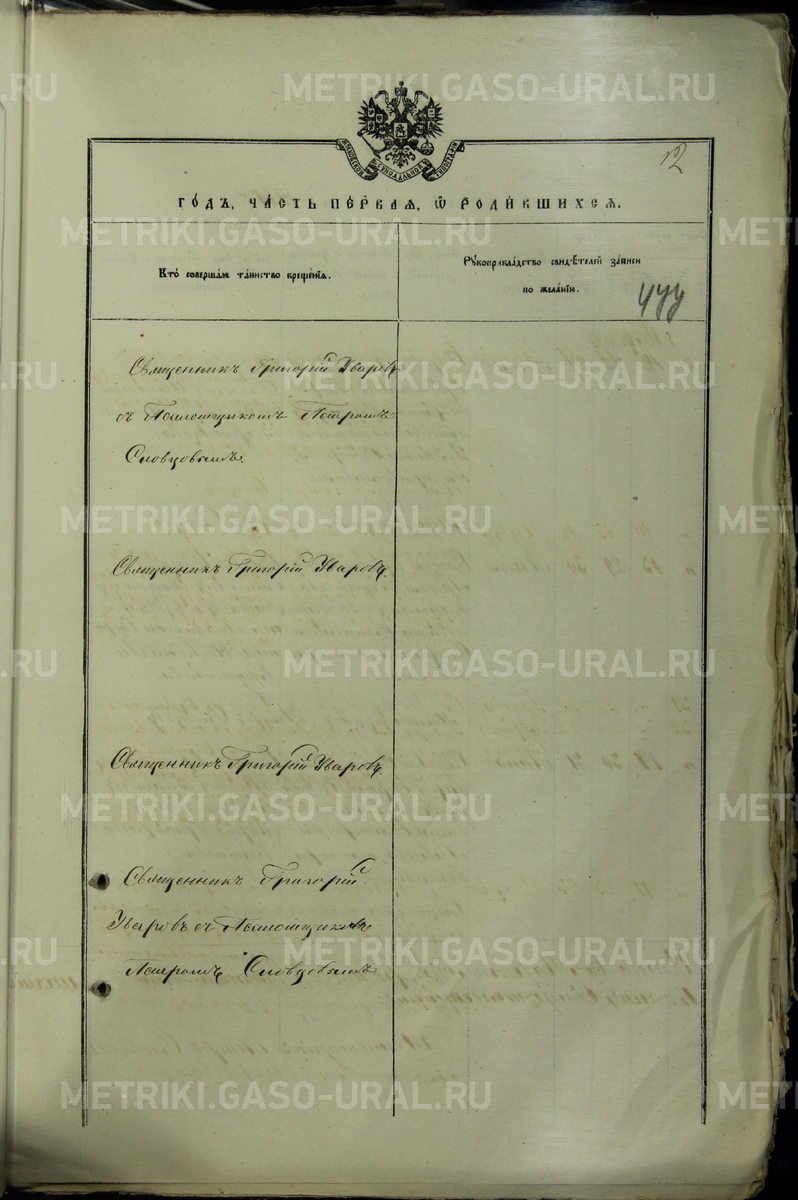 METRIKI.GASO-URAL.RU
МОСКОВСКОЙ СѴНОДАЛЬНОЙ ТИПОГРАФІИ
12
ГО́ДЪ, ЧА́СТЬ ПЕ́РВАЯ, Ѡ РОДИ́ВШИХСЯ.
Кто̀ соверша́лъ та́инство креще́нія.
Рꙋкоприкла́дство свидѣ́телей за́писи
по жела́нію.
444
Священникъ Григорій Уваровъ
съ Псаломщикомъ Петромъ
Словцовымъ.
Священникъ Григорій Уваровъ.
Священникъ Григорій Уваровъ.
Священникъ Григорій
Уваровъ съ Псаломщикомъ
Петромъ Словцовымъ